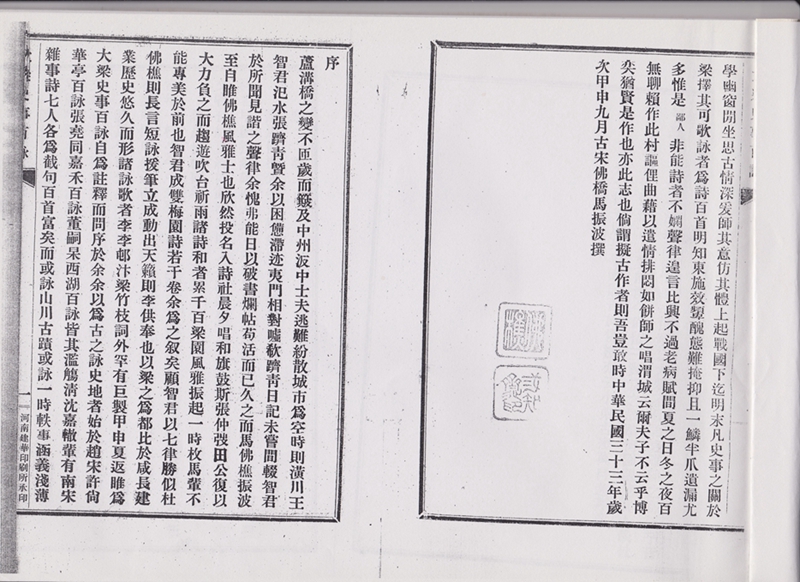 學幽窗閒坐思古情深爰師其意仿其體上起戰國下迄明末凡史事之關於
梁擇其可歌詠者為詩百首明知東施效顰醜態難掩抑且一鱗半爪遺漏尤
多惟是鄙人非能詩者不嫻聲律遑言比興不過老病賦閒夏之日冬之夜百
無聊賴作此村謳俚曲藉以遣情排悶如餅師之唱渭城云爾夫子不云乎博
奕猶賢是作也亦此志也倘謂擬古作者則吾豈敢時中華民國三十三年歲
次甲申九月古宋佛橋馬振波撰
序
蘆溝橋之變不匝歲而蘱及中州汳中士夫逃難紛散城市為空時則潢川王
智君汜水張躋青暨余以困憊滯迹夷門相對噓欷躋青日記未嘗間輟智君
於所聞見諧之聲律余愧弗能日以破書爛帖苟活而已久之而馬佛樵振波
至自睢佛樵風雅士也欣然投名入詩社晨夕唱和旗鼓斯張仲弢田公復以
大力負之而趨遊吹台祈雨諸詩和者累千百梁園風雅振起一時枚馬輩不
能專美於前也智君成雙梅園詩若干卷余為之叙矣顧智君以七律勝似杜
佛樵則長言短詠援筆立成動出天籟則李供奉也以梁之為都比於咸長建
業歷史悠久而形諸詠歌者李邨汴梁竹枝詞外罕有巨製甲申夏返睢為
大梁史事百詠自為註釋而問序於余余以為古之詠史地者始於趙宋許尙
華亭百詠張堯同嘉禾百詠董嗣杲西湖百詠皆其濫觴清沈嘉轍輩有南宋
雜事詩七人各為截句百首富矣而或詠山川古蹟或詠一時軼事涵義淺薄
一
河南建華印刷所承印